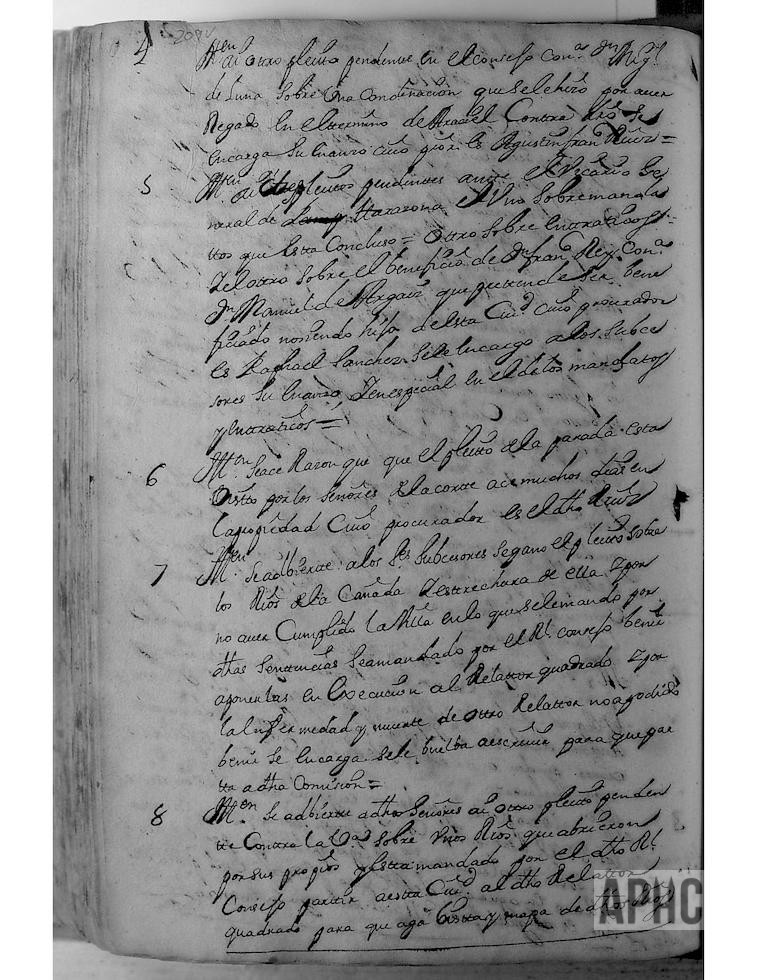 4 208v
Itten ai otro pleito pendiente en el consejo con.a Dn Mig.l
de Luna sobre Una Condenacion que se le hizo por auer
Regado en el termino de Contra se
encarga su enano cuio es Agustin fran.co Ruiz =
5 Itten ai tres pleitos pendientes ante el Vicario Ge
neral de Tarazona el Vno sobre manda
ttos que Esta Concluso = Ottro sobre
Y el otro sobre el beneficio de Dn fran.co Rey con.a
Dn Manuel de Argaiz que pretende ser bene
ficiado no siendo hijo de esta Ciu.d Cuio procurador
es Raphael Sanchez se le encargo a los subce
sores su Y en especial en el de los mandatos
y
6 Itten se ace Razon que que el pleito de la parada esta
Visto por los Señores de la corte ace muchos dias en
la propiedad Cuio procurador es el dho Ruiz
7 Itten se adbierte a los S.res subcesores se gano el pleito sobre
los Rios de la Cañada Y estrechura de ella Y por
no auer Cumplido la Villa en lo que se le mando por
dhas Sentencias se a mandado por el R.l consejo benir
a ponerlas en Execucion al Relattor quadrado Y por
la enfermedad y muerte de ottro Relattor no a podido
benir se encarga se le buelba a escriuir para que par
tta a dha Comision =
8 Itten se adbierte a dhos Señores ai ottro pleito penden
tte Contra la sobre Vnos Rios que abrieron
por sus propios y esta mandado por el dho R.l
Consejo partir a esta Ciu.d al dho Relattor
quadrado para que aga bista y mapa de dhos Rios
APHC